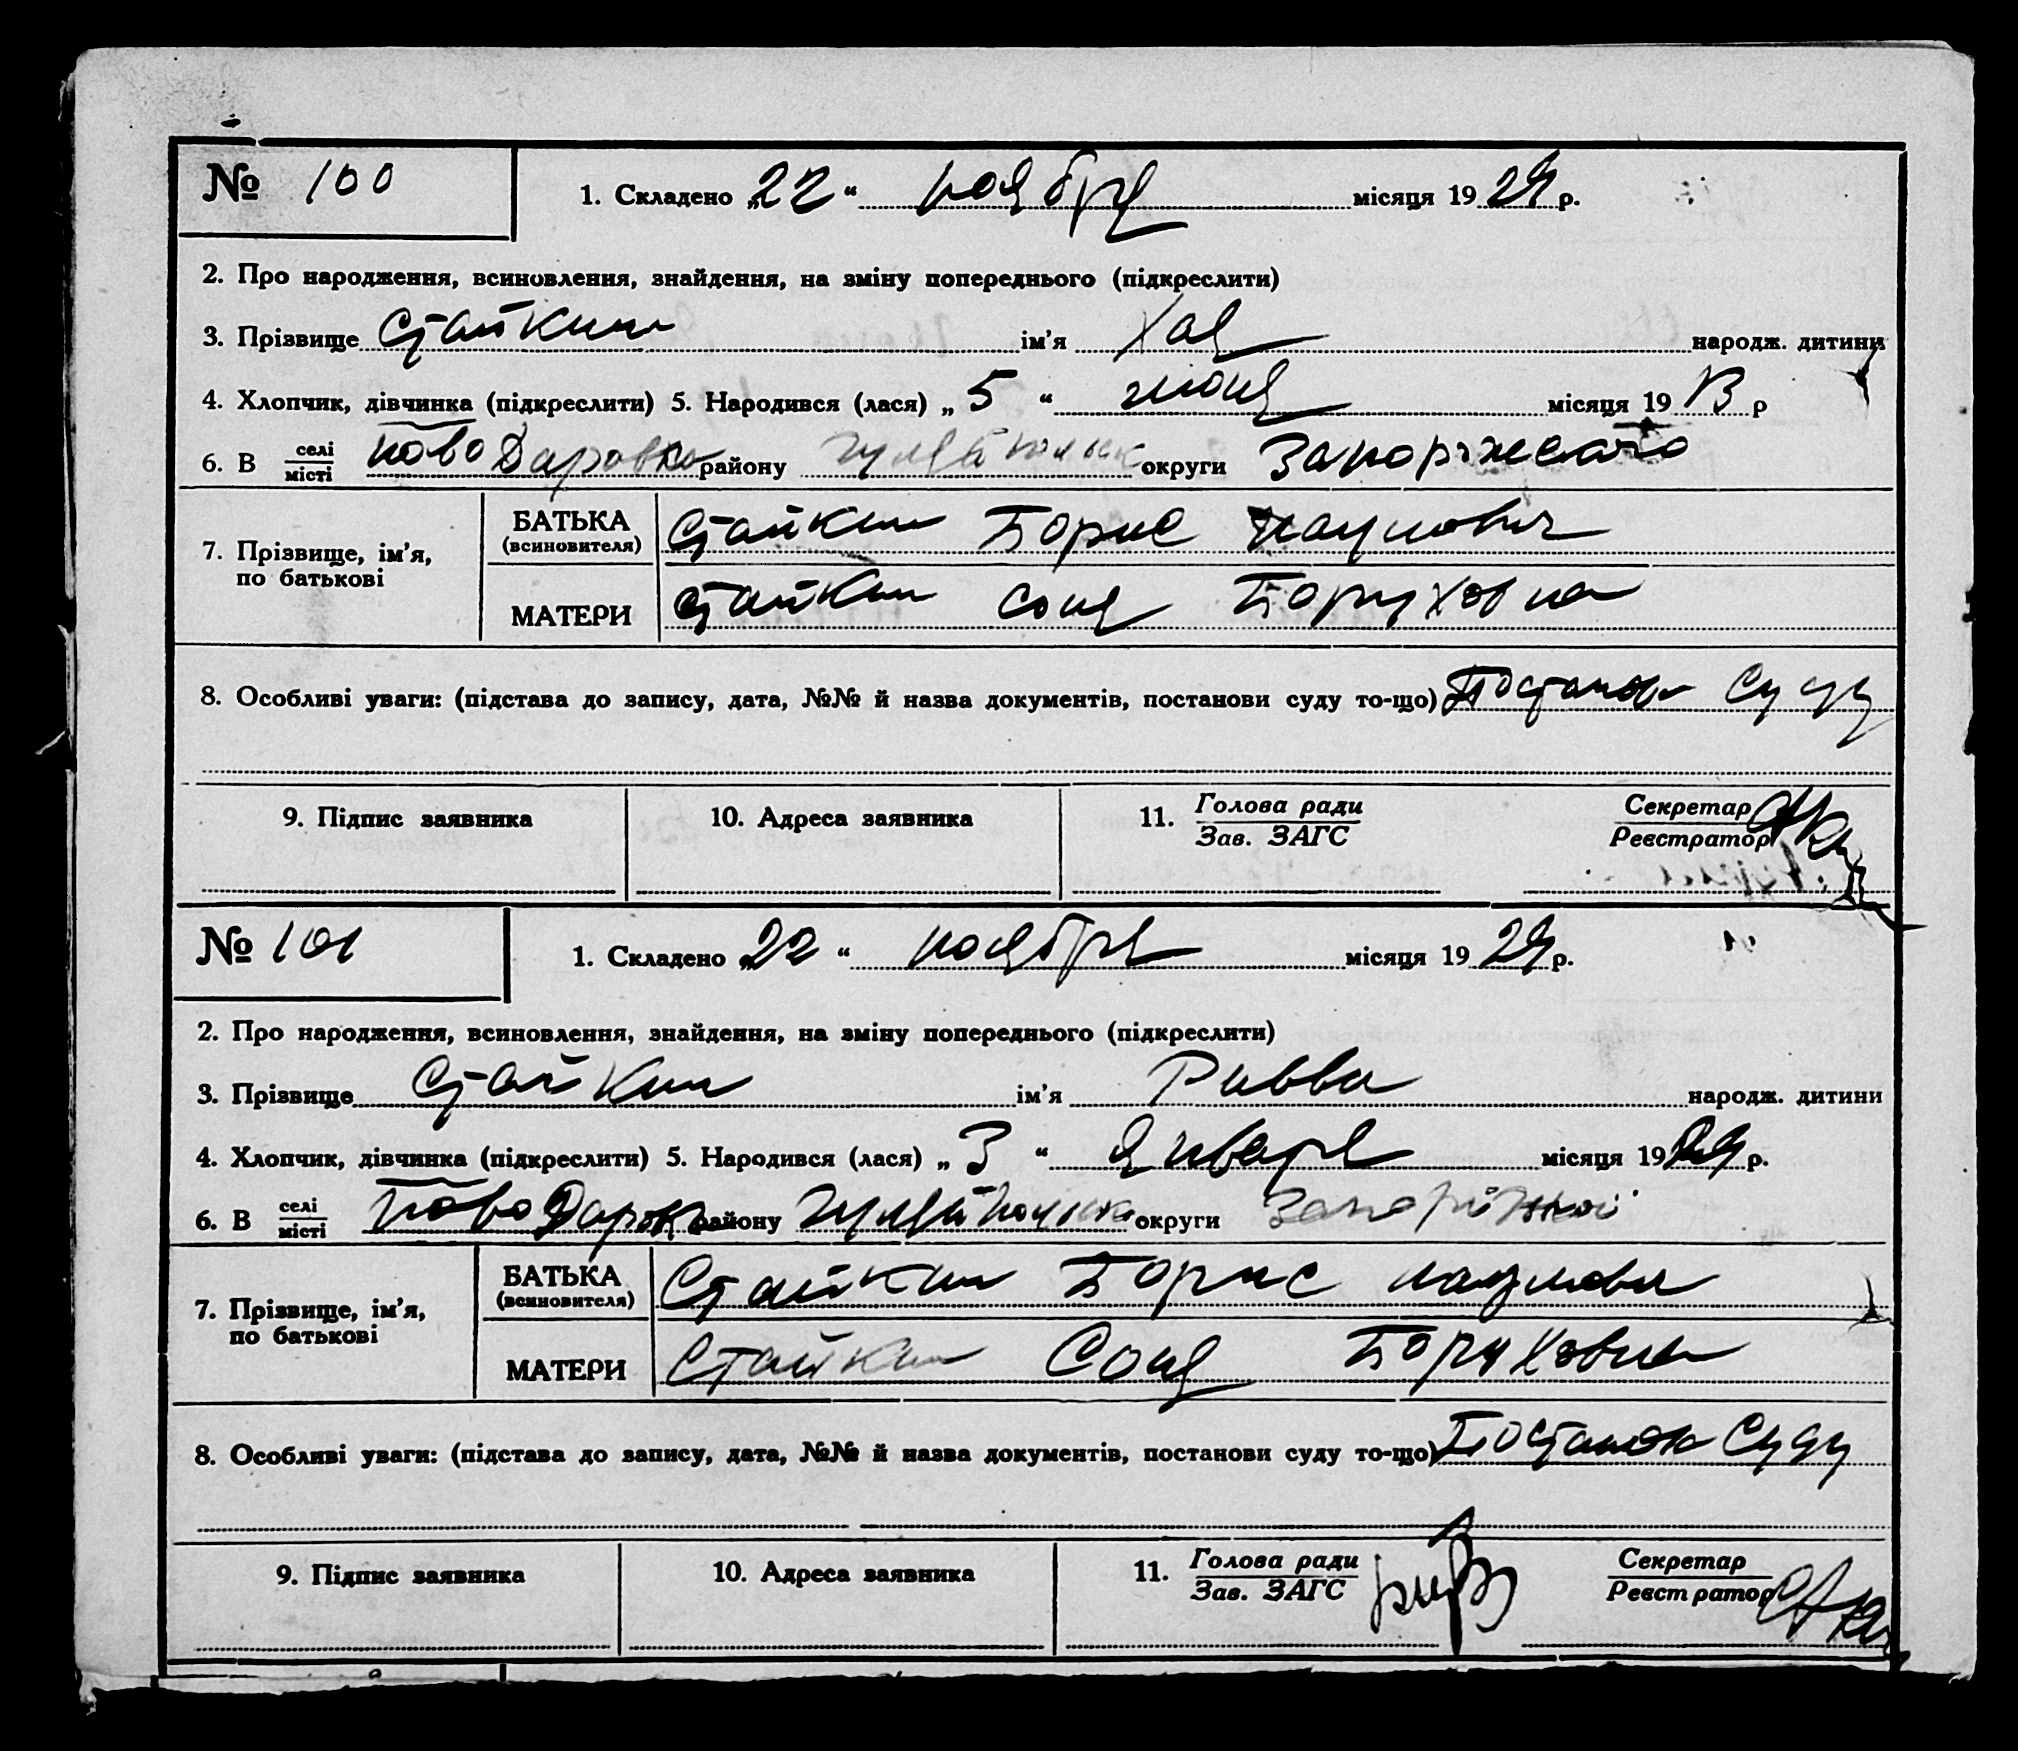 № 100 1. Складено „22“ ноября місяця 1924 р.
2. Про народження, всиновлення, знайдення, на зміну попереднього (підкреслити)
3. Прізвище Стайкин ім'я Хая народж. дитини
4. Хлопчик, дівчинка (підкреслити) 5. Народився (лася) „ 5 “ місяця 19 р
6. В селі місті Ново Даровка району округи Запорожского
7. Прізвище, ім'я, по батькові
БАТЬКА (всиновителя) Стайкин Борис Наумович
МАТЕРИ Стайкин Соня Боруховна
8. Особливі уваги: (підстава до запису, дата, №№ й назва документів, постанови суду то-що) Постанов Суду
9. Підпис заявника 10. Адреса заявника 11. Голова ради Секретар
Зав. ЗАГС Реєстратор
№ 101 1. Складено „22“ ноября місяця 1924 р.
2. Про народження, всиновлення, знайдення, на зміну попереднього (підкреслити)
3. Прізвище Стайкин ім'я Ривва народж. дитини
4. Хлопчик, дівчинка (підкреслити) 5. Народився (лася) „ 3 “ Января місяця 19 р.
6. В селі місті Ново Даровк району округи
7. Прізвище, ім'я, по батькові
БАТЬКА (всиновителя) Стайкин Борис Наумови
МАТЕРИ Стайкин Соня Боруховна
8. Особливі уваги: (підстава до запису, дата, №№ й назва документів, постанови суду то-що) Постанов Суду
9. Підпис заявника 10. Адреса заявника 11. Голова ради Секретар
Зав. ЗАГС Реєстратор